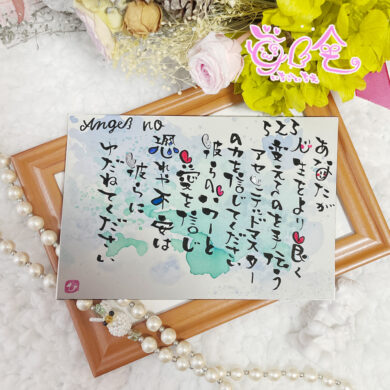 Angel no 323
あなたが
人生をより良く
変えるのを手伝う
アセンデッドマスター
の力を信じてください
彼らのパワーと
愛を信じ
恐れや不安は
彼らに
ゆだねてください